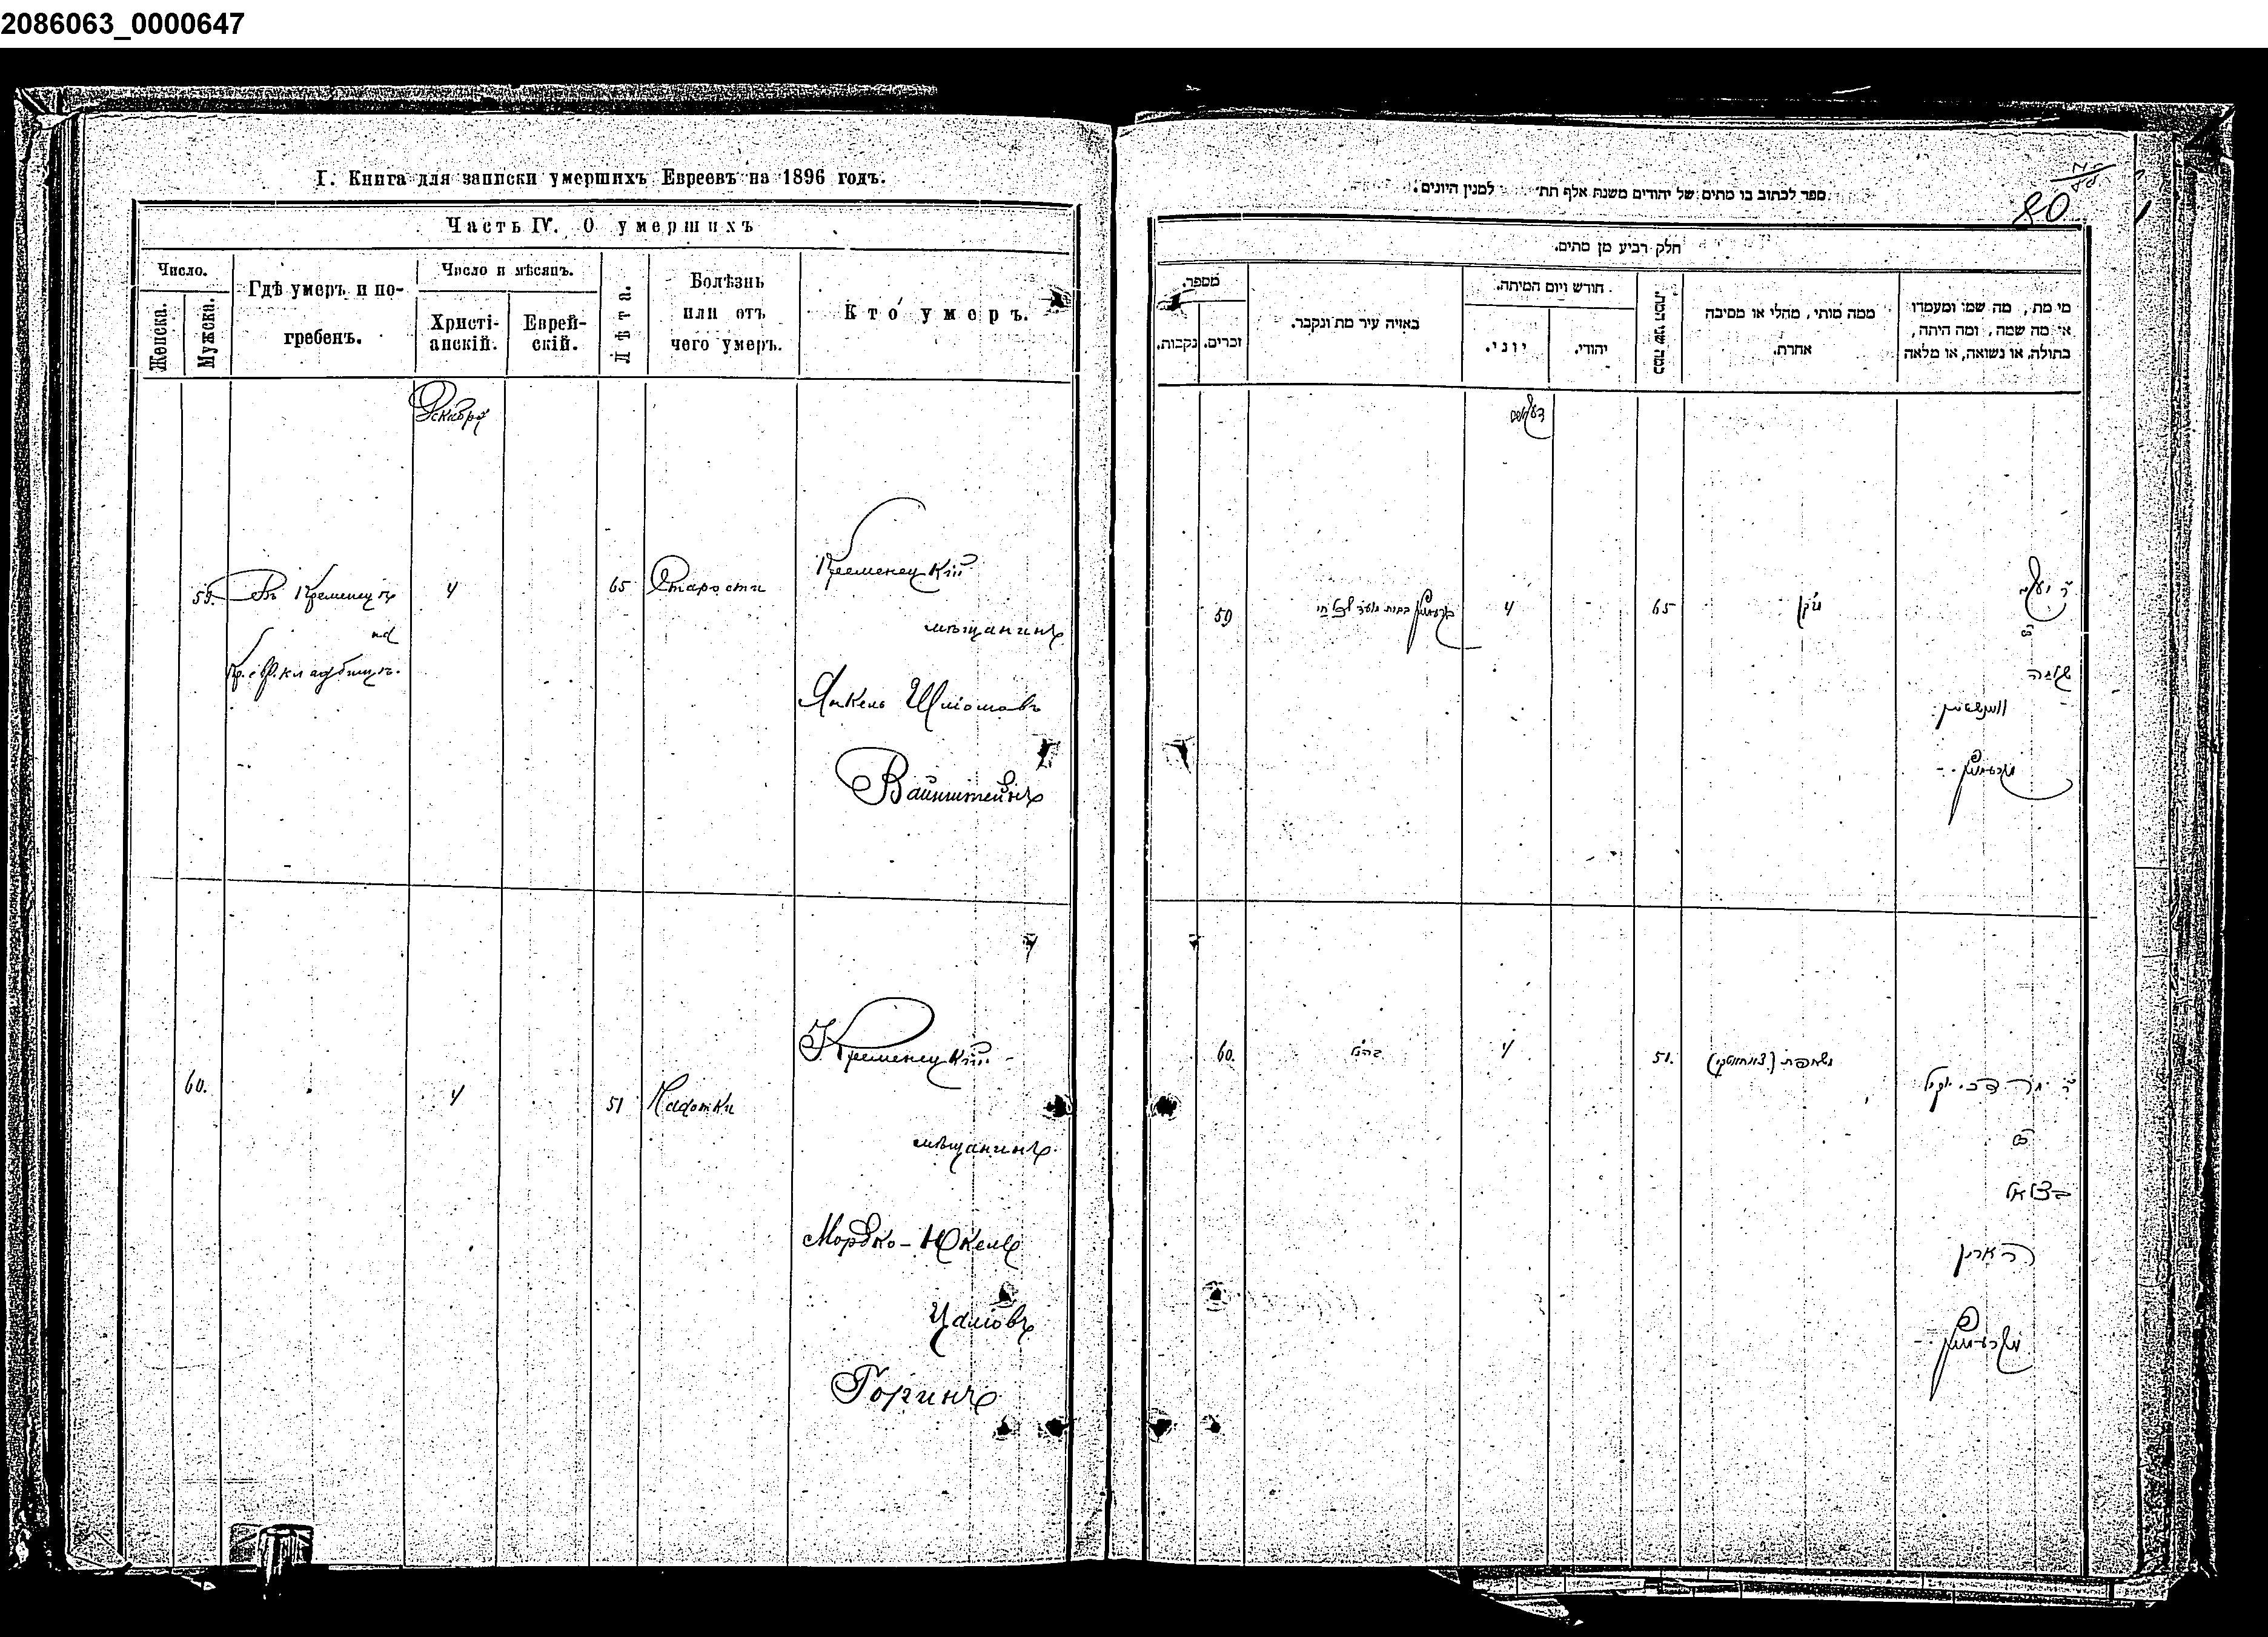 2086063_0000647
I. Книга для записки умершихъ Евреевъ на 1896 годъ.
Часть IV. О умершихъ
Число.
Женска.
Мужска.
Гдѣ умеръ и по-
гребенъ.
Число и мѣсяцъ.
Христі-
анскій.
Еврей-
скій.
Лѣта.
Болѣзнь
или отъ
чего умеръ.
Кто умеръ.
Декабря
59.
Въ Кременцѣ
на
Кр. евр. кладбищѣ.
4
65
Старости
Кременецкій
мѣщанинъ
Янкель Шліомовъ
Вайнштейнъ
60.
4
51
Чахотки
Кременецкій
мѣщанинъ
Мордко-Юкель
Цаліовъ
Горинъ
80
ספר לכתוב בו מתים של יהודים משנת אלף תת׳ למנין היונים.
חלק רביע מן מתים.
מספר.
נקבות.
זכרים.
באיזה עיר מת ונקבר.
חורש ויום המיתה.
יוני.
יהודי.
כמה שני המת.
ממה מותי, מחלי או מסיבה
אחרת.
מי מת, מה שמו ומעמדו
או מה שמה, ומה היתה,
בתולה, או נשואה, או מלאה
59
4
65
זקן
ר׳ יעקב
שלמה
וויינשטיין
מקרעמניץ
60.
כהנ״ל
4
51.
בצלאל
הארין
מקרעמניץ